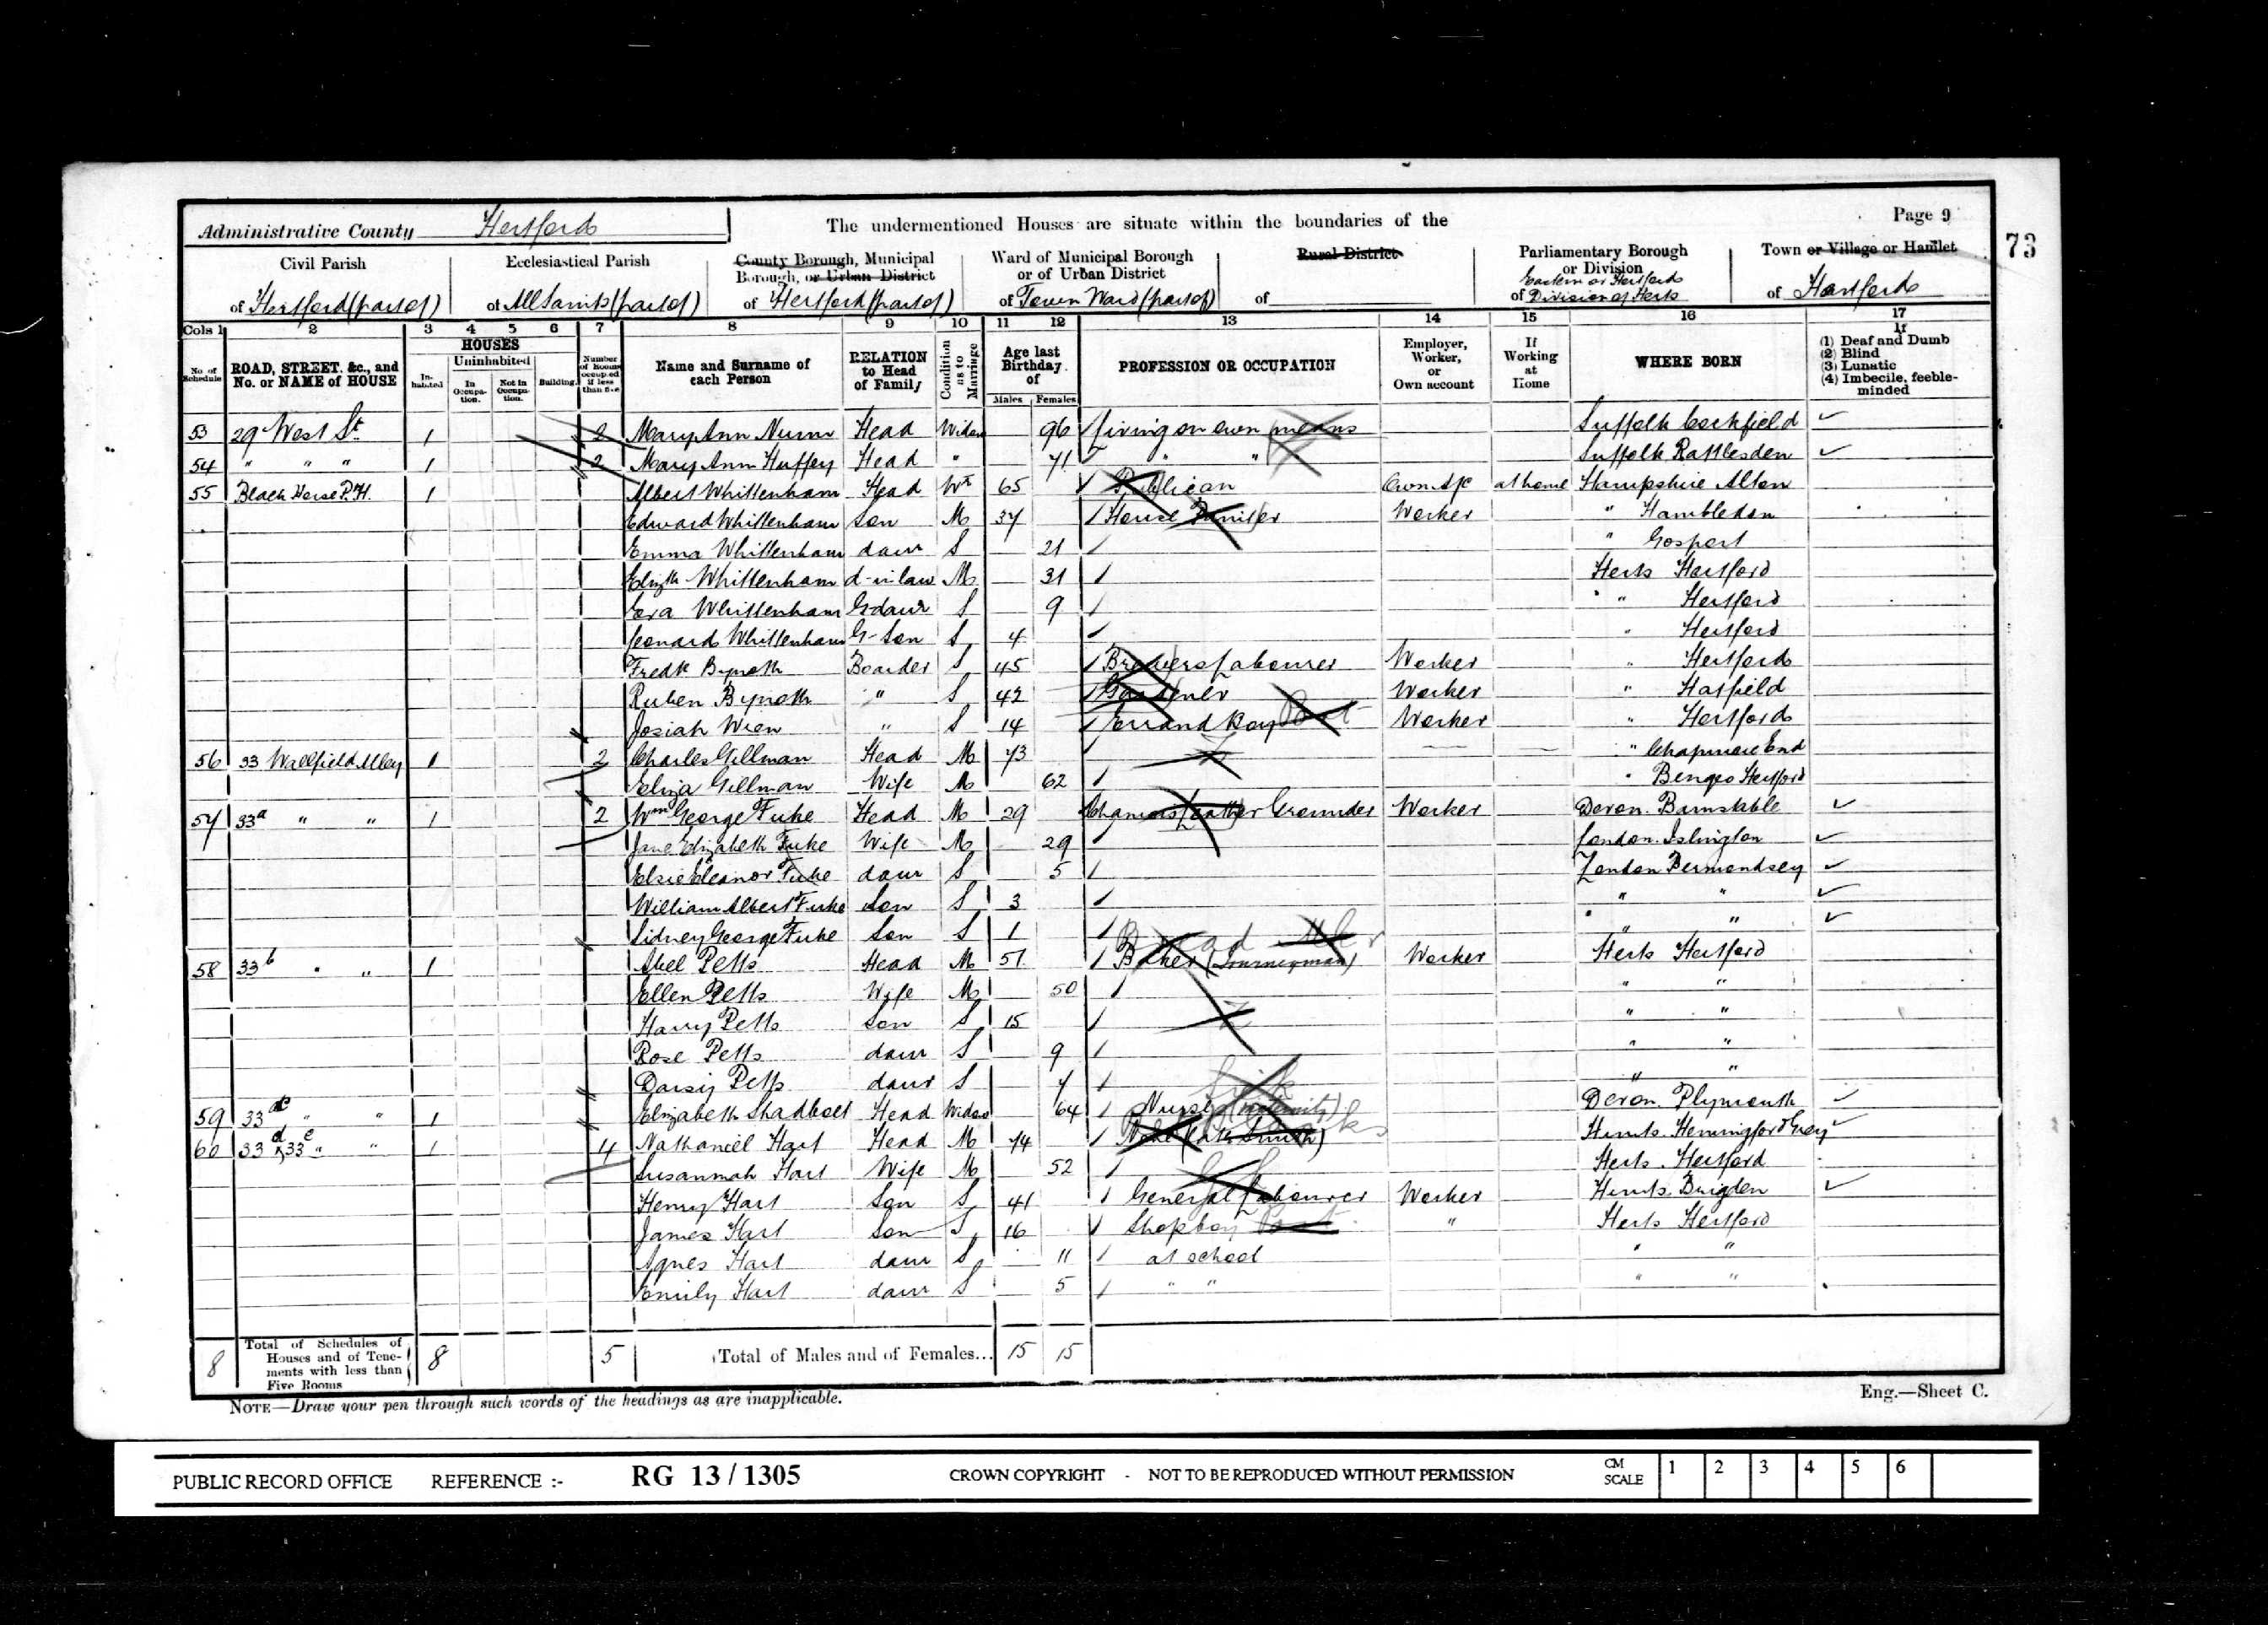 Page 9
73
Administrative County Hertford
The undermentioned Houses are situate within the boundaries of the
Civil Parish
of Hertford (part of)
Ecclesiastical Parish
of All Saints (part of)
County Borough, Municipal
Borough, or Urban District
of Hertford (part of)
Ward of Municipal Borough
or of Urban District
of Town Ward (part of)
Rural District
of
Parliamentary Borough
or Division
Eastern or Hertford
of Division of Herts
Town or Village or Hamlet
of Hertford
Cols 1 2 3 4 5 6 7 8 9 10 11 12 13 14 15 16 17
No. of Schedule
ROAD, STREET, &c., and
No. or NAME of HOUSE
HOUSES
In-habited
Uninhabited
In Occupa-tion.
Not in Occupa-tion.
Building.
Number of Rooms occupied if less than five
Name and Surname of
each Person
RELATION
to Head
of Family
Condition as to Marriage
Age last
Birthday
of
Males Females
PROFESSION OR OCCUPATION
Employer,
Worker,
or
Own account
If
Working
at
Home
WHERE BORN
If
(1) Deaf and Dumb
(2) Blind
(3) Lunatic
(4) Imbecile, feeble-
minded
53 29 West St. 1 2 Mary Ann Nunn Head Widow 96 Living on own means Suffolk Cockfield
54 " " " 1 2 Mary Ann Huffey Head " 71 " " Suffolk Rattlesden
55 Black Horse P.H. 1 Albert Whittenham Head Wr 65 Publican Own A/c at home Hampshire Alton
Edward Whittenham Son M 37 House Painter Worker " Hambledon
Emma Whittenham daur S 21 " Gosport
Elizth Whittenham d-in law M 31 Herts Hertford
Eva Whittenham Gdaur S 9 " Hertford
Leonard Whittenham G-Son S 4 " Hertford
Fredk Bynoth Boarder S 45 Brewers Labourer Worker " Hertford
Ruben Bynoth " S 42 Gardener Worker " Hatfield
Josiah Wren " S 14 Errand Boy Worker " Hertford
56 33 Wallfield Alley 1 2 Charles Gillman Head M 73 " Chapmore End
Eliza Gillman Wife M 62 " Bengeo Hertford
57 33a " " 1 2 Wm George Fuke Head M 29 Chamois Leather Grounder Worker Devon. Barnstable
Jane Elizabeth Fuke Wife M 29 London. Islington
Elsie Eleanor Fuke daur S 5 London Bermondsey
William Albert Fuke Son S 3 " "
Sidney George Fuke Son S 1 " "
58 33b " " 1 Abel Petts Head M 51 Baker (Journeyman) Worker Herts Hertford
Bread
Ellen Petts Wife M 50 " "
Harry Petts Son S 15 " "
Rose Petts daur S 9 " "
Daisy Petts daur S 7 " "
59 33c " " 1 Elizabeth Shadbolt Head Widow 64 Nurse Devon. Plymouth
60 33d & 33e " " 1 4 Nathaniel Hart Head M 74 Hunts. Hemingford Grey
Susannah Hart Wife M 52 Herts. Hertford
Henry Hart Son S 41 General Labourer Worker Hunts.
James Hart Son S 16 Shop boy " Herts Hertford
Agnes Hart daur S 11 at school " "
Emily Hart daur S 5 " " " "
8 Total of Schedules of
Houses and of Tene-
ments with less than
Five Rooms 8 5 Total of Males and of Females... 15 15
NOTE—Draw your pen through such words of the headings as are inapplicable.
Eng.—Sheet C.
PUBLIC RECORD OFFICE REFERENCE :- RG 13 / 1305 CROWN COPYRIGHT - NOT TO BE REPRODUCED WITHOUT PERMISSION CM SCALE 1 2 3 4 5 6